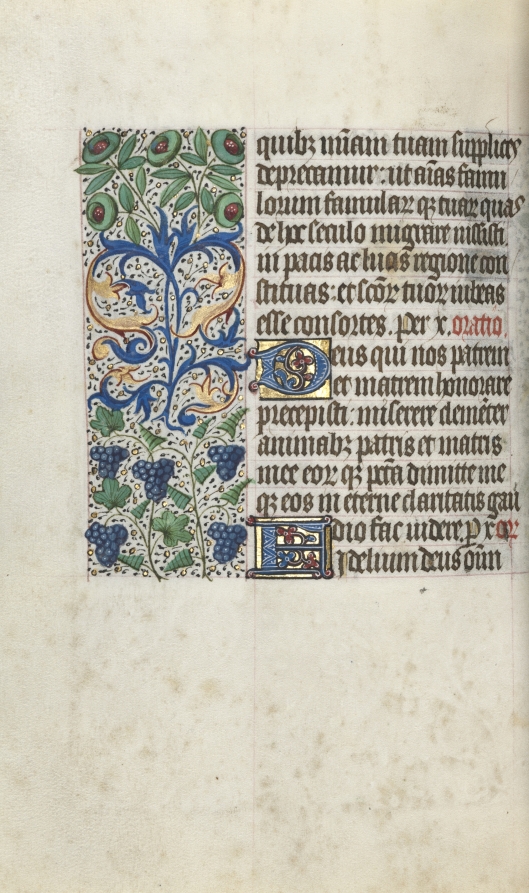 quibꝫ mīam tuam supplicꝰ
deprecamur: ut aīas famu
lorum famular̄ qꝫ tuar̄ quas
de hoc seculo migrare iussisti
in pacis ac lucis regione con
stituas: et scōr̄ tuor̄ iubeas
esse consortes. Per x. oratio.
Deus qui nos patrem
et matrem honorare
precepisti: miserere clemēter
animabꝫ patris et matris
mee eor̄ qꝫ pcc̄a dimitte me
qꝫ eos in eterne claritatis gau
dio fac uidere. p x or̄
Fidelium deus oīm